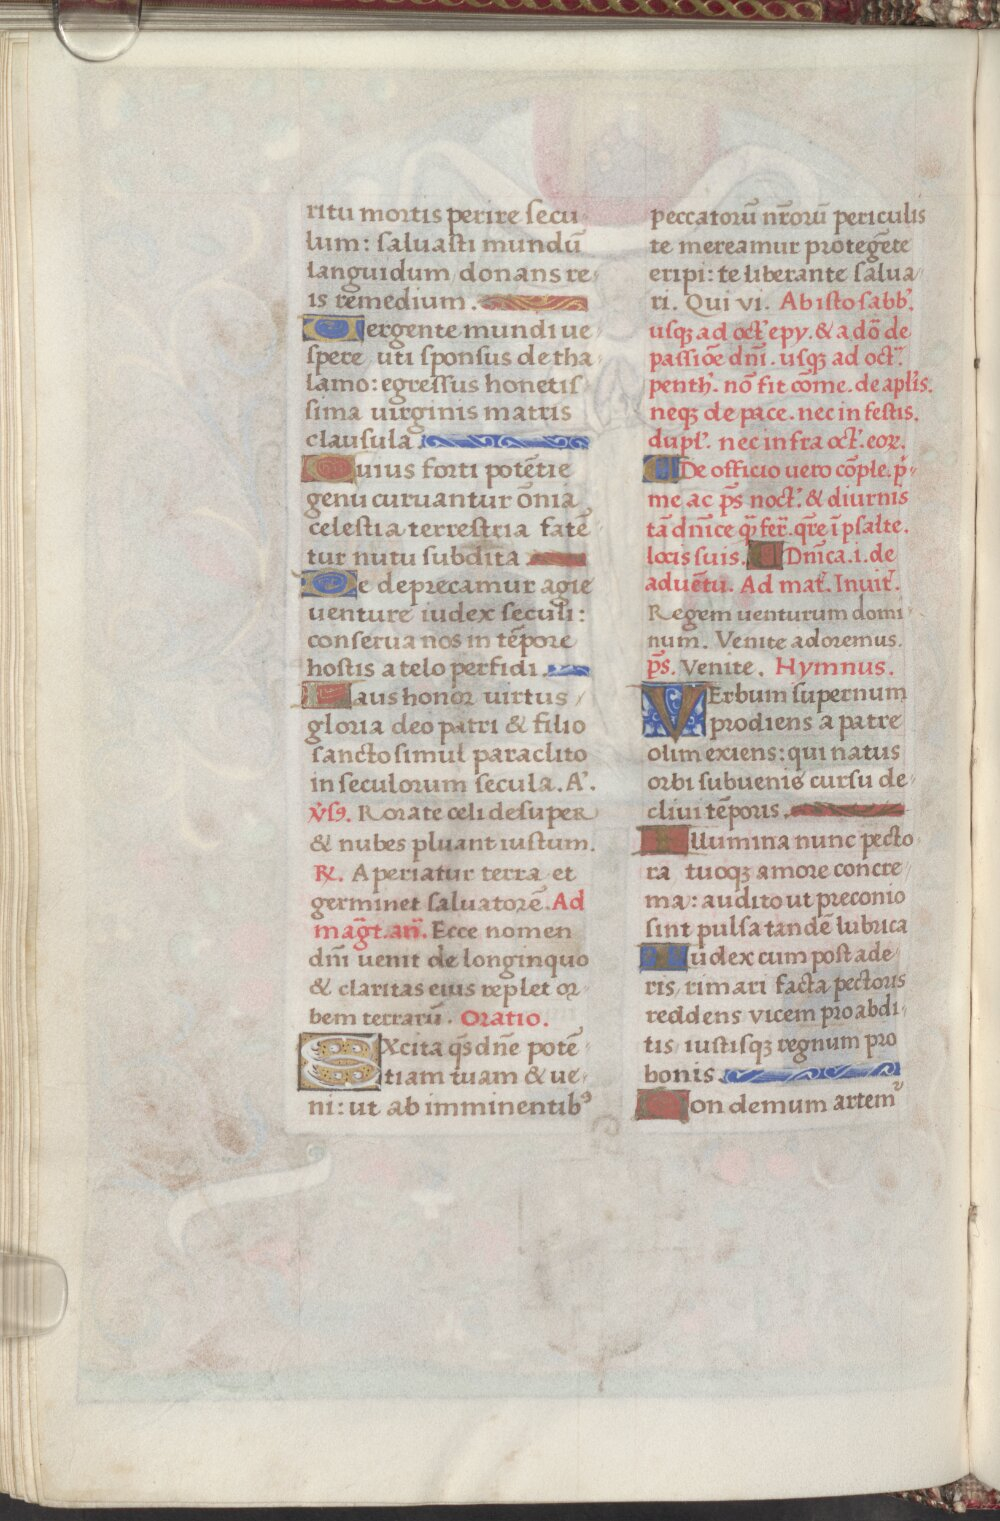 ritu mortis perire secu
lum: saluasti mundū
languidum donans re
is remedium.
Vergente mundi ue
spere uti sponsus de tha
lamo: egressus honetis
sima uirginis matris
clausula
Cuius forti potētie
genu curuantur ōnia
celestia terrestria fatē
tur nutu subdita
Te deprecamur agie
uenture iudex seculi:
conserua nos in tēpore
hostis a telo perfidi.
Laus honor uirtus
gloria deo patri & filio
sancto simul paraclito
in seculorum secula. A'.
v̄s9. Rorate celi desuper
& nubes pluant iustum.
R. Aperiatur terra et
germinet saluatorē. Ad
mag̃t. añ. Ecce nomen
dñi uenit de longinquo
& claritas eius replet or
bem terrarū. Oratio.
EXcita q̄s dñe potē
tiam tuam & ue
ni: ut ab imminentibꝰ
peccatorū nr̄orū periculis
te mereamur protegēte
eripi: te liberante salua
ri. Qui vi. Ab isto sabb'.
usqꝫ ad oct' epy. & a dō de
passiōe dñi. usqꝫ ad oct'.
penth'. nō fit cōme. de apl'is.
neqꝫ de pace. nec in festis.
dupl'. nec infra oct'. eoꝝ.
De officio uero cōple. p'
me ac p̄s noct'. & diurnis
tā dn̄ice q̄ fer̄. qr̄e ī psalte.
locis suis. Dn̄ica .i. de
aduētu. Ad mat'. Inuit'.
Regem uenturum domi
num. Venite adoremus.
p̄s. Venite. Hymnus.
VErbum supernum
prodiens a patre
olim exiens: qui natus
orbi subuenis cursu de
cliui tēporis.
Illumina nunc pecto
ra tuoqꝫ amore concre
ma: audito ut preconio
sint pulsa tandē lubrica
Iudex cum post ade
ris rimari facta pectoris
reddens vicem pro abdi
tis iustisqꝫ regnum pro
bonis
Non demum artemͮ